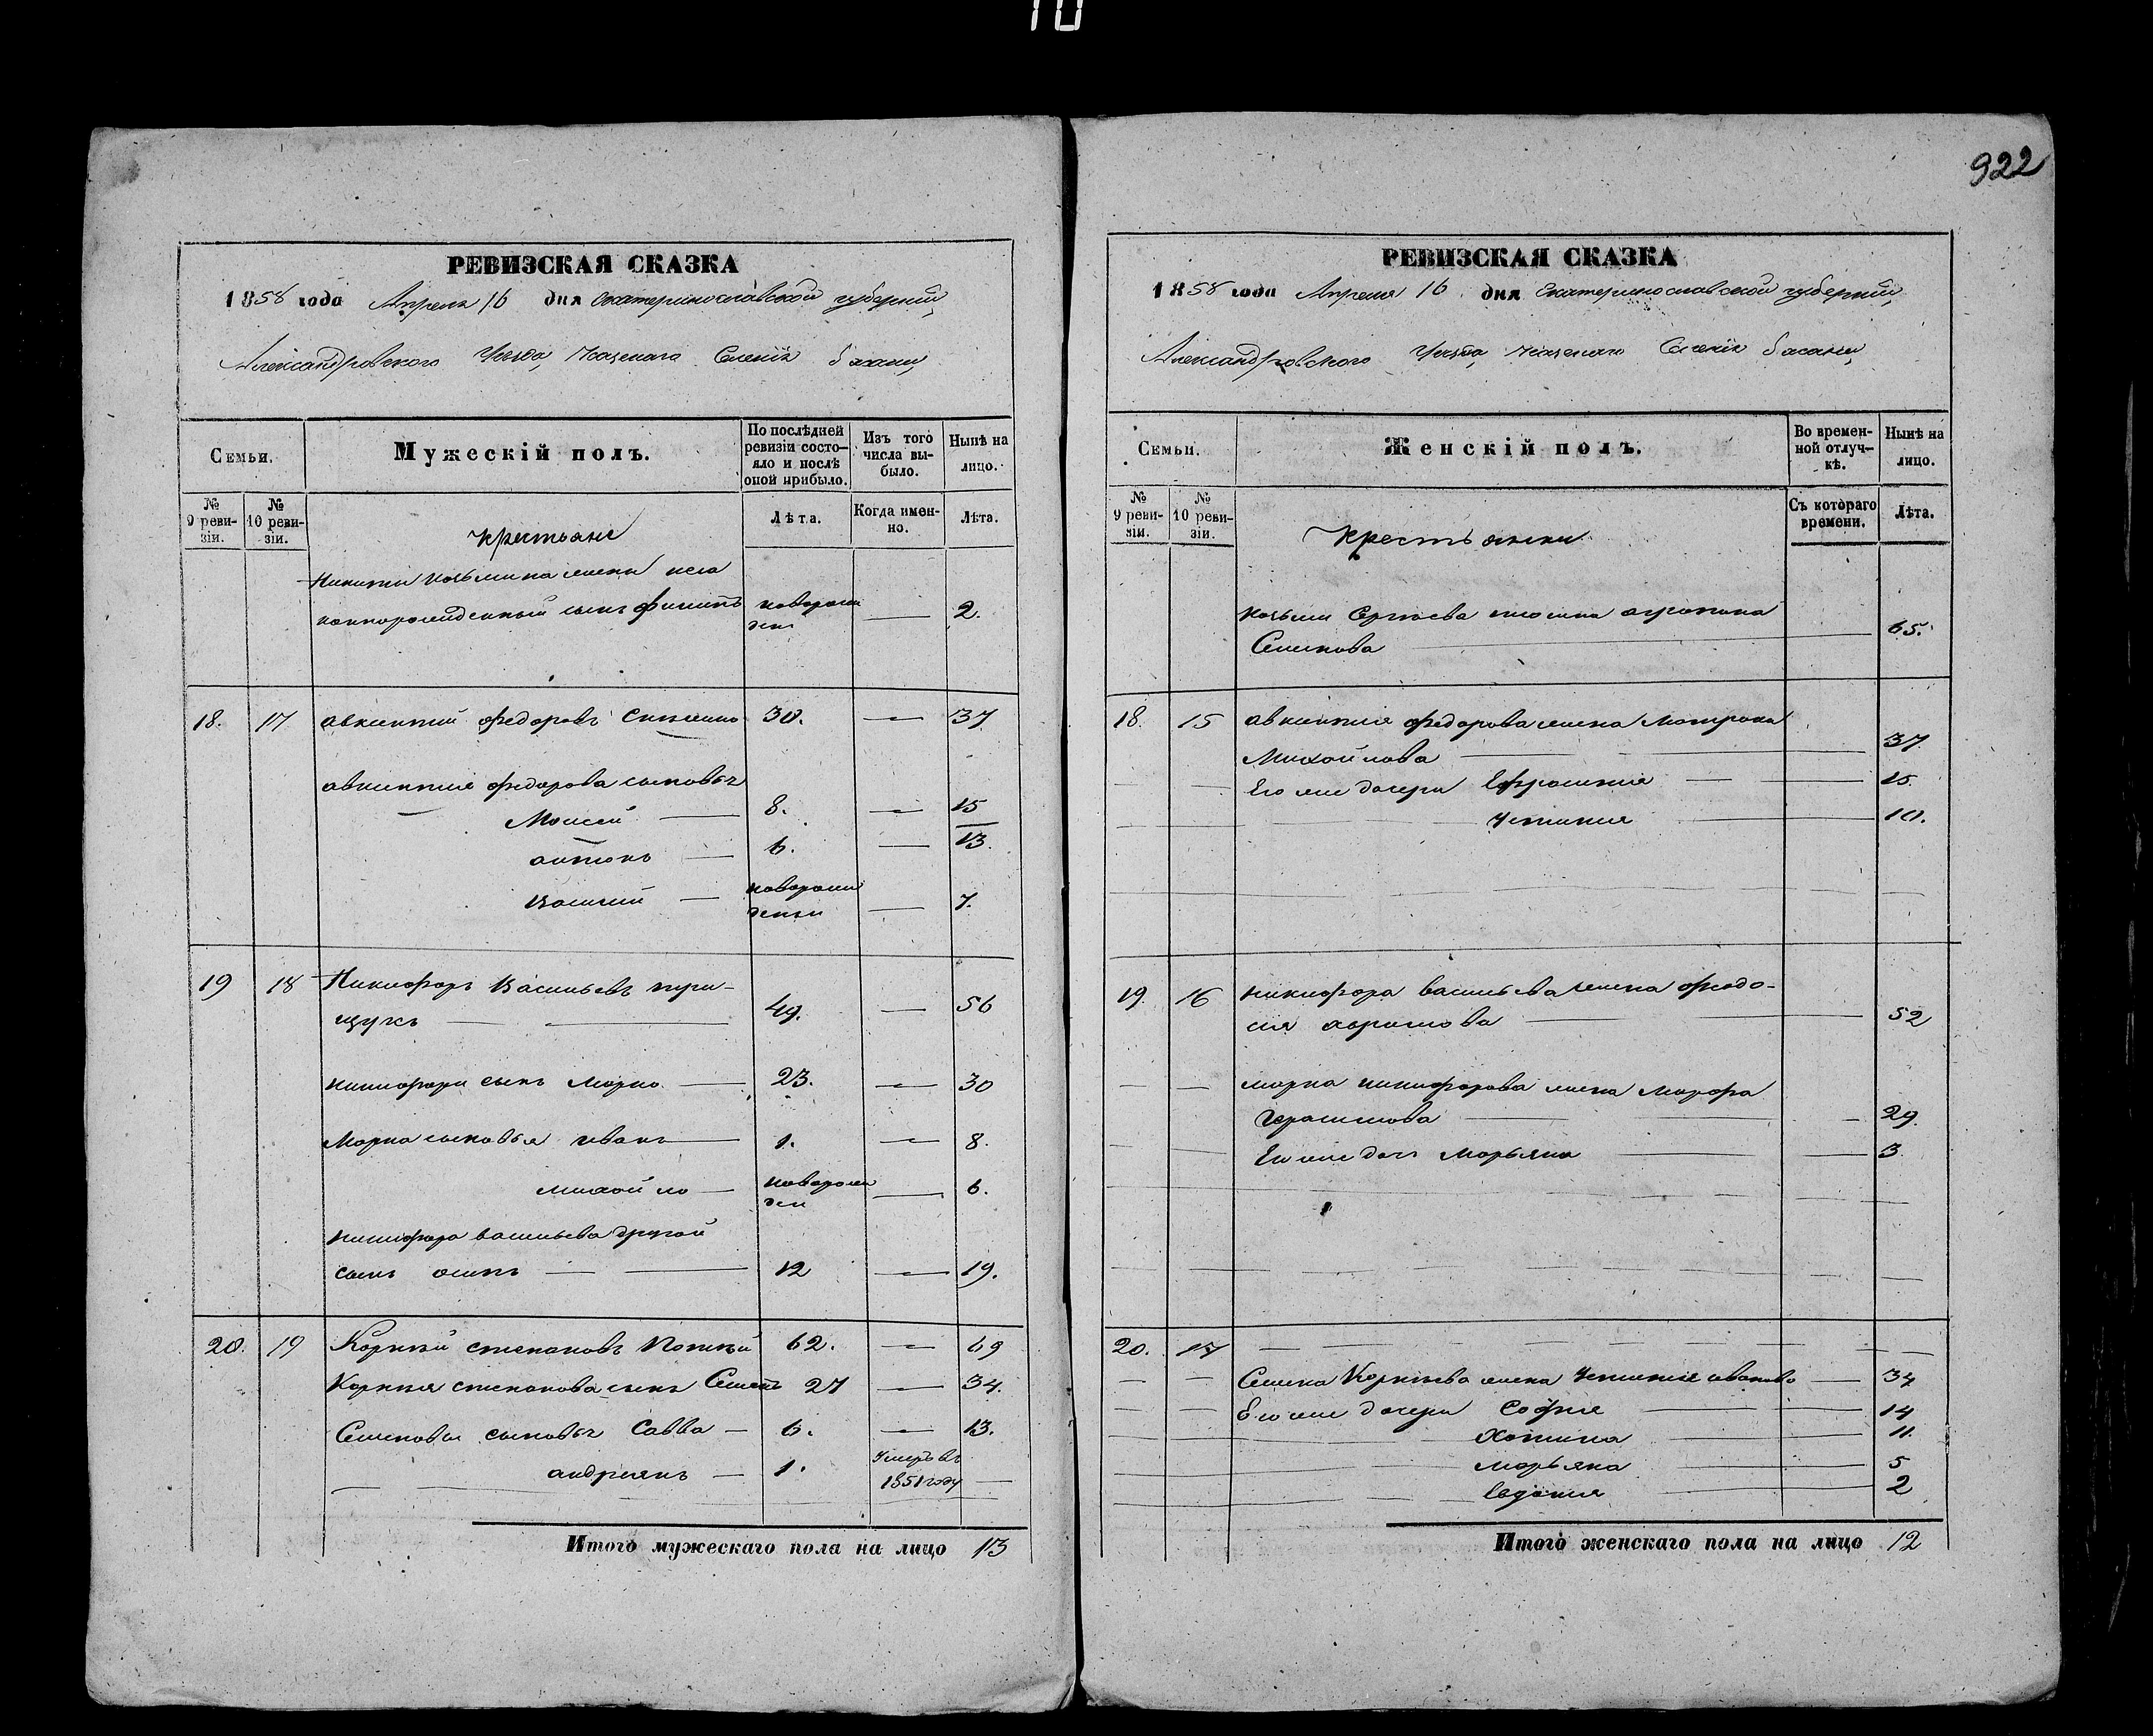 10
922
РЕВИЗСКАЯ СКАЗКА
1858 года Апреля 16 дня Екатеринославской губерніи,
Александровского Уезда, Казенаго Селенія басани,
Семьи.
Мужескій полъ.
По послѣдней ревизіи состояло и послѣ оной прибыло.
Изъ того числа выбыло.
Нынѣ на лицо.
№ 9 ревизіи.
№ 10 ревизіи.
крестьяне
Лѣта.
Когда именно.
Лѣта.
Никиты козьмина
сынъ новорожденъ — 2.
18. 17 авксентий федоровъ 30. — 37
авксентия федорова сыновья
Моисей — 8. — 15
антонъ — 6. — 13.
Василий — новорожденъ — 7.
19 18 Никифоръ Васильевъ
49. — 56
никифора сынъ Марко — 23. — 30
Марка сыновья иванъ — 1. — 8.
михайло — новорожден — 6.
никифора васильева другой
сынъ осипъ — 12 — 19.
20. 19 Корнѣй степановъ 62. — 69
Корнѣя степанова сынъ Семенъ 27 — 34.
Семеновы сыновья Савва — 6. — 13.
андреянъ — 1. умеръ въ 1851 году —
Итого мужескаго пола на лицо 13
РЕВИЗСКАЯ СКАЗКА
1858 года Апреля 16 дня Екатеринославской губерніи,
Александровского Уезда, Казенаго Селенія басани,
Семьи.
Женскій полъ.
Во временной отлучкѣ.
Нынѣ на лицо.
№ 9 ревизіи.
№ 10 ревизіи.
Крестьянки
Съ котораго времени.
Лѣта.
козьмы Сергеева жена
Семенова — 65.
18. 15 авксентия федорова жена Мотрона
Михайлова — 37.
Его же дочери Ефросиния — 15.
Устиния — 10.
19. 16 никифора васильева жена федосия
абрамова — 52
марка никифорова жена Марфа
Герасимова — 29.
Его же дочь Марьяна — 3.
20. 17
Семена Корнѣева жена Устиния иванова — 34
Его же дочери София — 14
11.
марьяна — 5
2
Итого женскаго пола на лицо 12